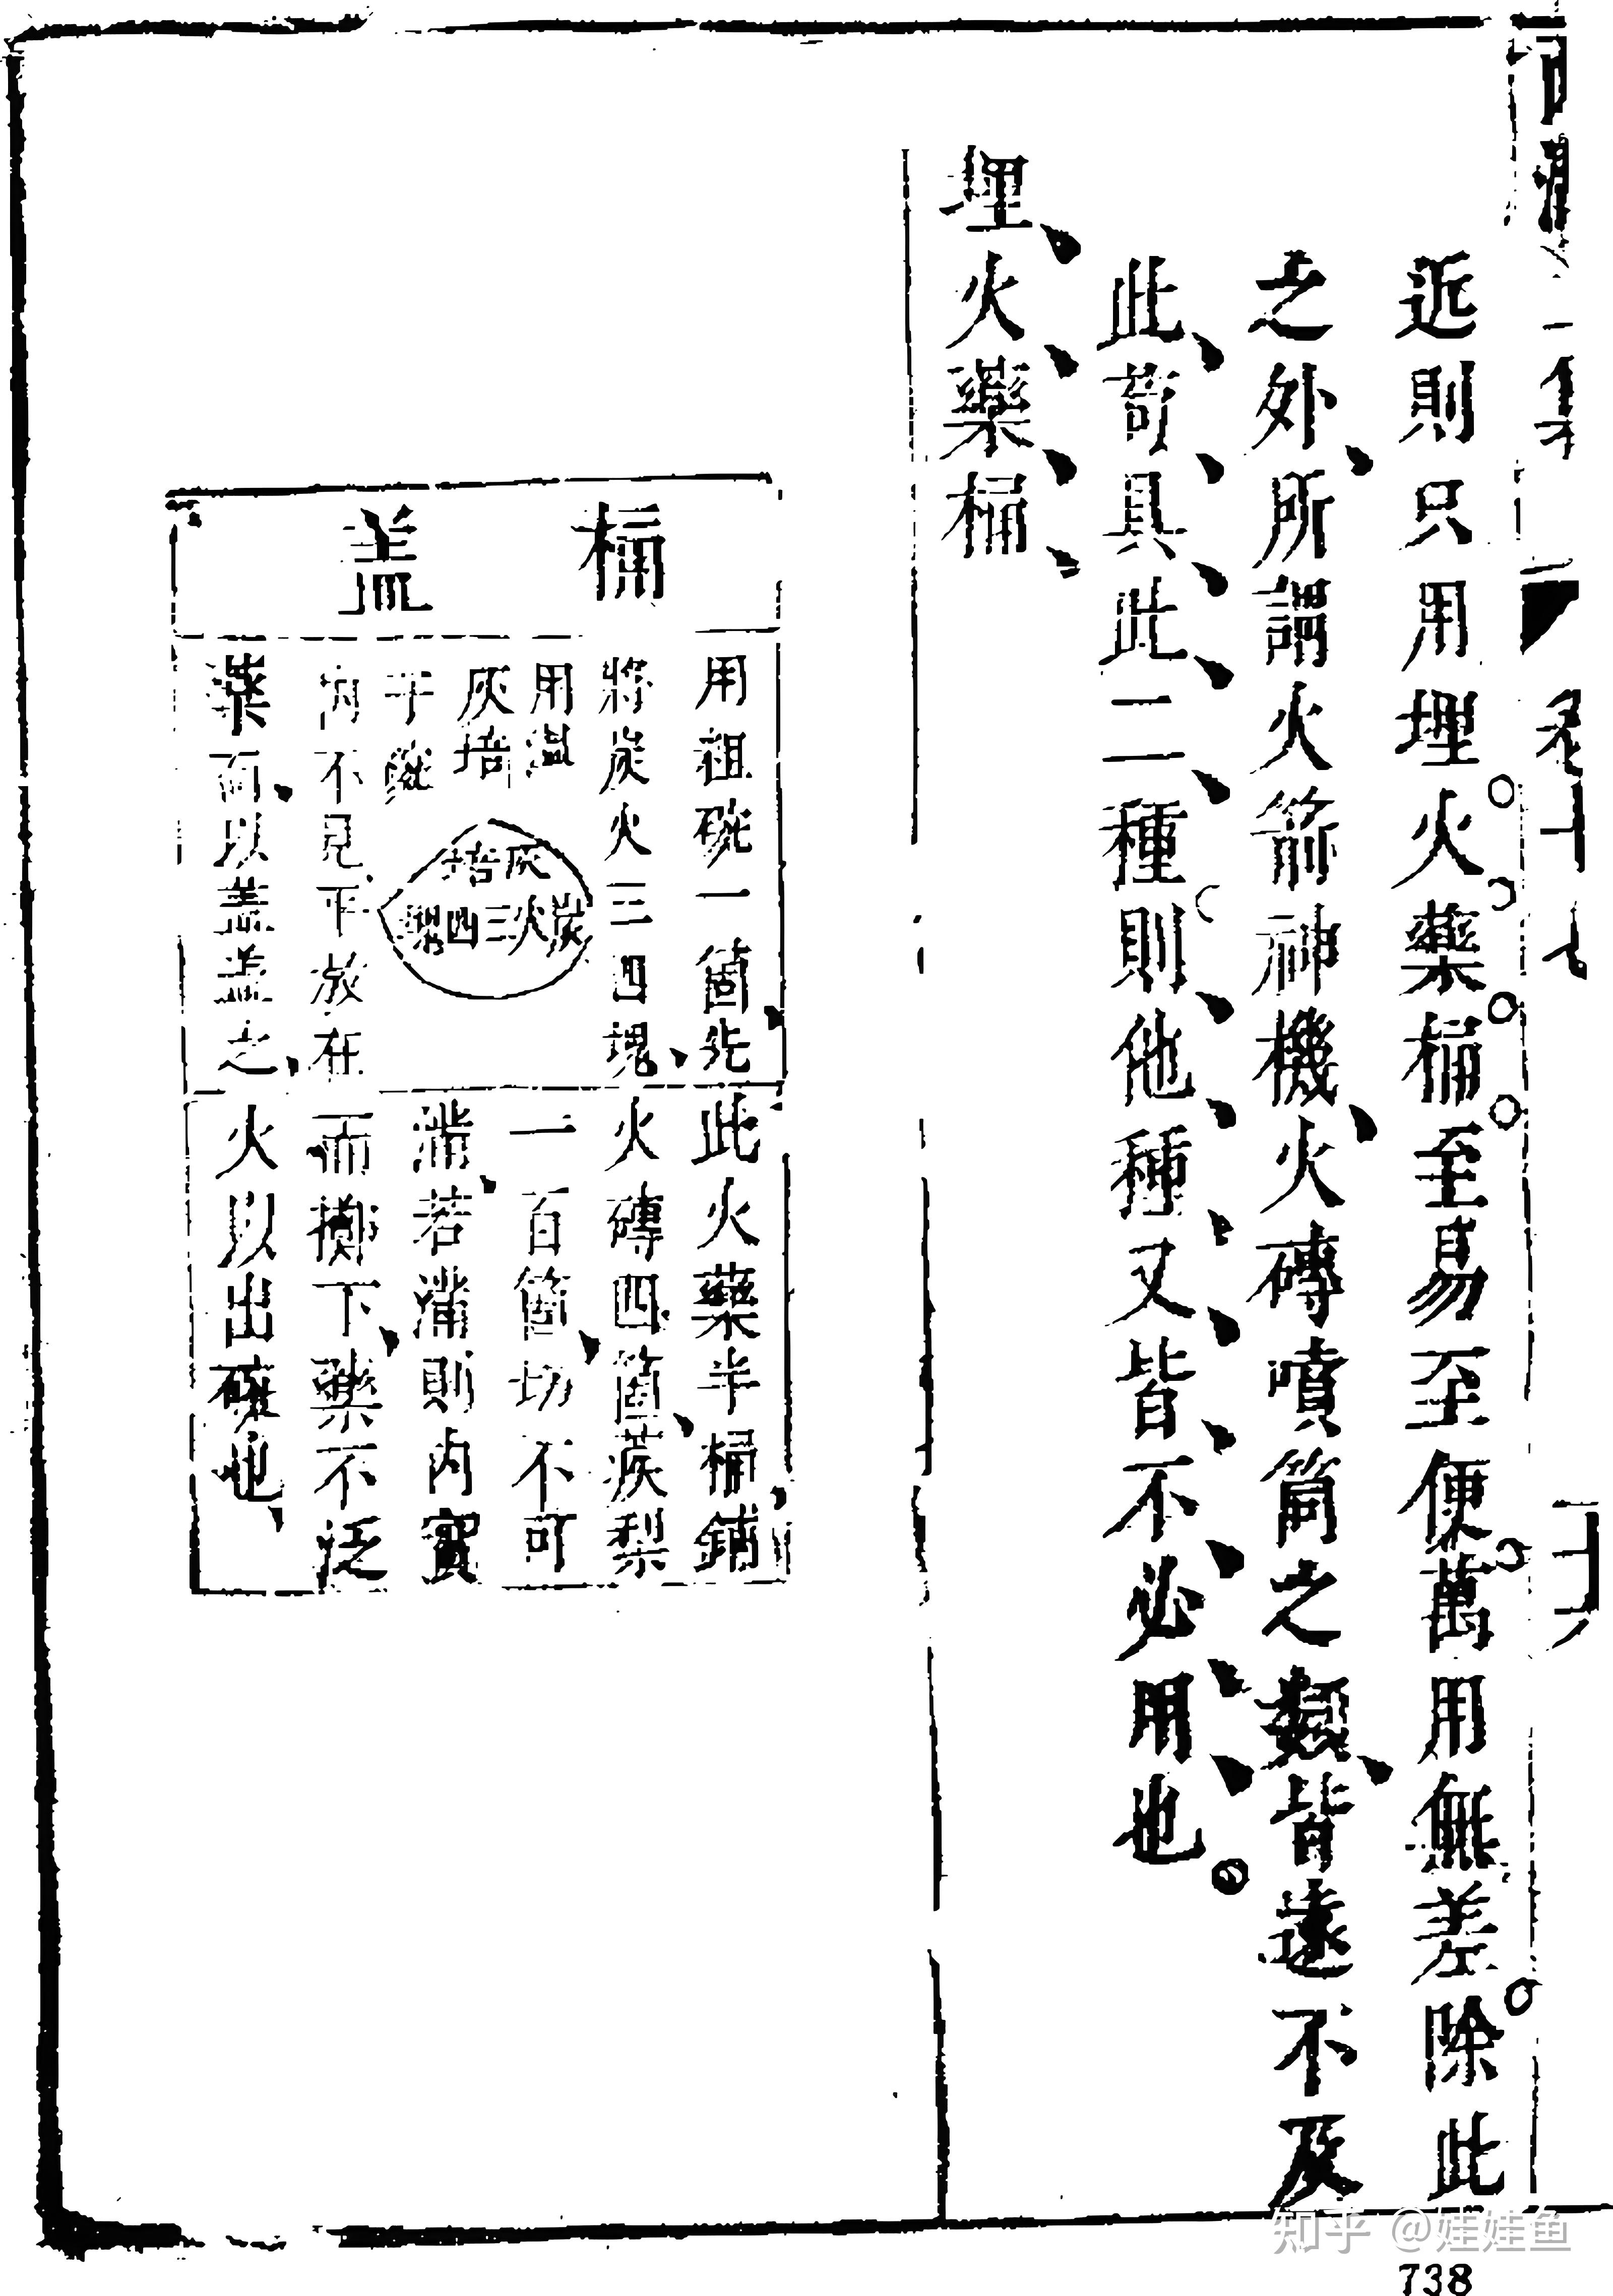 近則只用埋火藥桶至易至便萬用無差除此
之外所謂火箭神機火磚噴筒之類皆遠不及
此苟具此二種則他種又皆不必用也
埋火藥桶
桶盖
用粗碗一箇先
將炭火三四塊
用温
灰培
于碗
内不見平放在
藥面以盖盖之
灰培
炭火三四塊
此火藥半桶鋪
火磚四箇蒺梨
一百箇切不可
滿若滿則内實
而擲下藥不泛
火以出碗也
知乎 @娃娃鱼
738